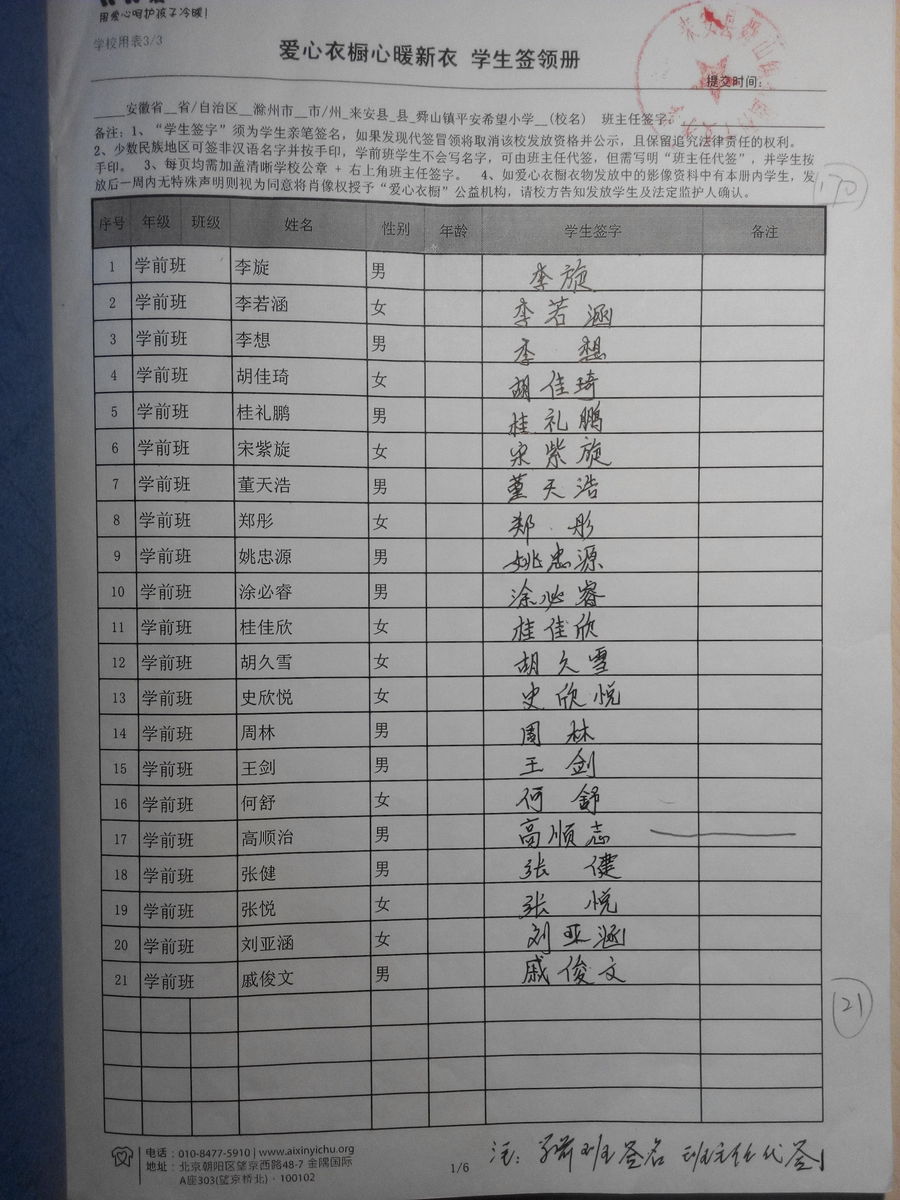 用爱心呵护孩子冷暖!
学校用表3/3
爱心衣橱心暖新衣 学生签领册
提交时间:
____安徽省__省/自治区__滁州市__市/州_来安县_县_舜山镇平安希望小学__(校名) 班主任签字:
备注:1、“学生签字”须为学生亲笔签名,如果发现代签冒领将取消该校发放资格并公示,且保留追究法律责任的权利。
2、少数民族地区可签非汉语名字并按手印,学前班学生不会写名字,可由班主任代签,但需写明“班主任代签”,并学生按
手印。 3、每页均需加盖清晰学校公章 + 右上角班主任签字。 4、如爱心衣橱衣物发放中的影像资料中有本册内学生,发
放后一周内无特殊声明则视为同意将肖像权授予“爱心衣橱”公益机构,请校方告知发放学生及法定监护人确认。
170
序号 年级 班级 姓名 性别 年龄 学生签字 备注
1 学前班 李旋 男 李旋
2 学前班 李若涵 女 李若涵
3 学前班 李想 男 李想
4 学前班 胡佳琦 女 胡佳琦
5 学前班 桂礼鹏 男 桂礼鹏
6 学前班 宋紫旋 女 宋紫旋
7 学前班 董天浩 男 董天浩
8 学前班 郑彤 女 郑彤
9 学前班 姚忠源 男 姚忠源
10 学前班 涂必睿 男 涂必睿
11 学前班 桂佳欣 女 桂佳欣
12 学前班 胡久雪 女 胡久雪
13 学前班 史欣悦 女 史欣悦
14 学前班 周林 男 周林
15 学前班 王剑 男 王剑
16 学前班 何舒 女 何舒
17 学前班 高顺治 男 高顺志
18 学前班 张健 男 张健
19 学前班 张悦 女 张悦
20 学前班 刘亚涵 女 刘亚涵
21 学前班 戚俊文 男 戚俊文
21
电话:010-8477-5910 | www.aixinyichu.org
地址:北京朝阳区望京西路48-7 金隅国际
A座303(望京桥北)·100102
1/6
注:学前班签名 班主任代签